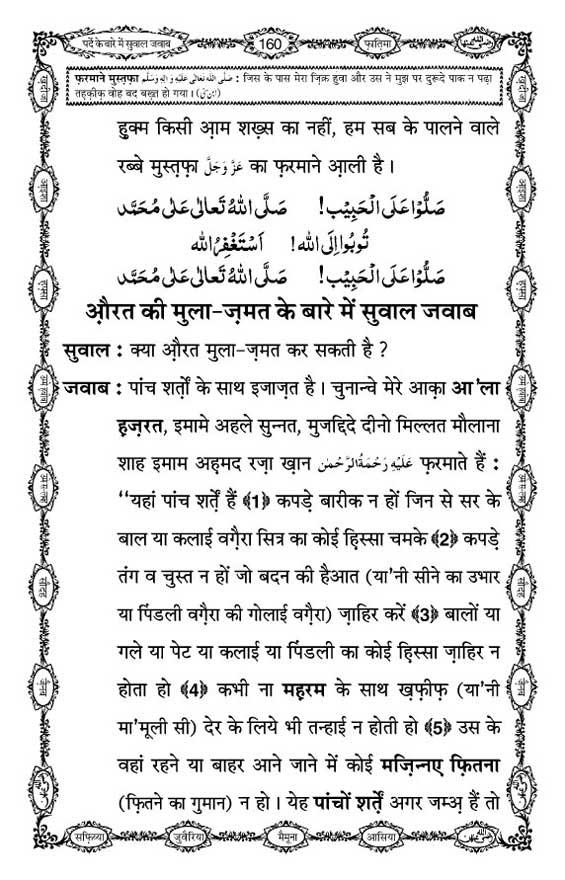 पर्दे के बारे में सुवाल जवाब
160
फ़ातिमा
फ़रमाने मुस्तफ़ा صَلَّى اللهُ تَعَالٰى عَلَيْهِ وَاٰلِهٖ وَسَلَّم : जिस के पास मेरा ज़िक्र हुवा और उस ने मुझ पर दुरूदे पाक न पढ़ा
तहक़ीक़ वोह बद बख़्त हो गया । (ابن سنی)
हुक्म किसी आ़म शख़्स का नहीं, हम सब के पालने वाले
रब्बे मुस्त़फ़ा عَزَّ وَجَلَّ का फ़रमाने आ़ली है ।
صَلُّوْا عَلَى الْحَبِيْب! صَلَّى اللهُ تَعَالٰى عَلٰى مُحَمَّد
تُوْبُوْا اِلَى الله! اَسْتَغْفِرُ الله
صَلُّوْا عَلَى الْحَبِيْب! صَلَّى اللهُ تَعَالٰى عَلٰى مُحَمَّد
औ़रत की मुला-ज़मत के बारे में सुवाल जवाब
सुवाल : क्या औ़रत मुला-ज़मत कर सकती है ?
जवाब : पांच शर्तों के साथ इजाज़त है । चुनान्चे मेरे आक़ा आ'ला
ह़ज़रत, इमामे अहले सुन्नत, मुजद्दिदे दीनो मिल्लत मौलाना
शाह इमाम अह़मद रज़ा ख़ान عَلَيْهِ رَحْمَةُ الرَّحْمٰن फ़रमाते हैं :
“यहां पांच शर्तें हैं ﴾1﴿ कपड़े बारीक न हों जिन से सर के
बाल या कलाई वग़ैरा सित्र का कोई हिस्सा चमके ﴾2﴿ कपड़े
तंग व चुस्त न हों जो बदन की हैआत (या'नी सीने का उभार
या पिंडली वग़ैरा की गोलाई वग़ैरा) ज़ाहिर करें ﴾3﴿ बालों या
गले या पेट या कलाई या पिंडली का कोई हिस्सा ज़ाहिर न
होता हो ﴾4﴿ कभी ना मह़रम के साथ ख़फ़ीफ़ (या'नी
मा'मूली सी) देर के लिये भी तन्हाई न होती हो ﴾5﴿ उस के
वहां रहने या बाहर आने जाने में कोई मज़िन्नए फ़ितना
(फ़ितने का गुमान) न हो । येह पांचों शर्तें अगर जम्अ़ हैं तो
सफ़िय्या
जुवैरिया
मैमूना
आसिया